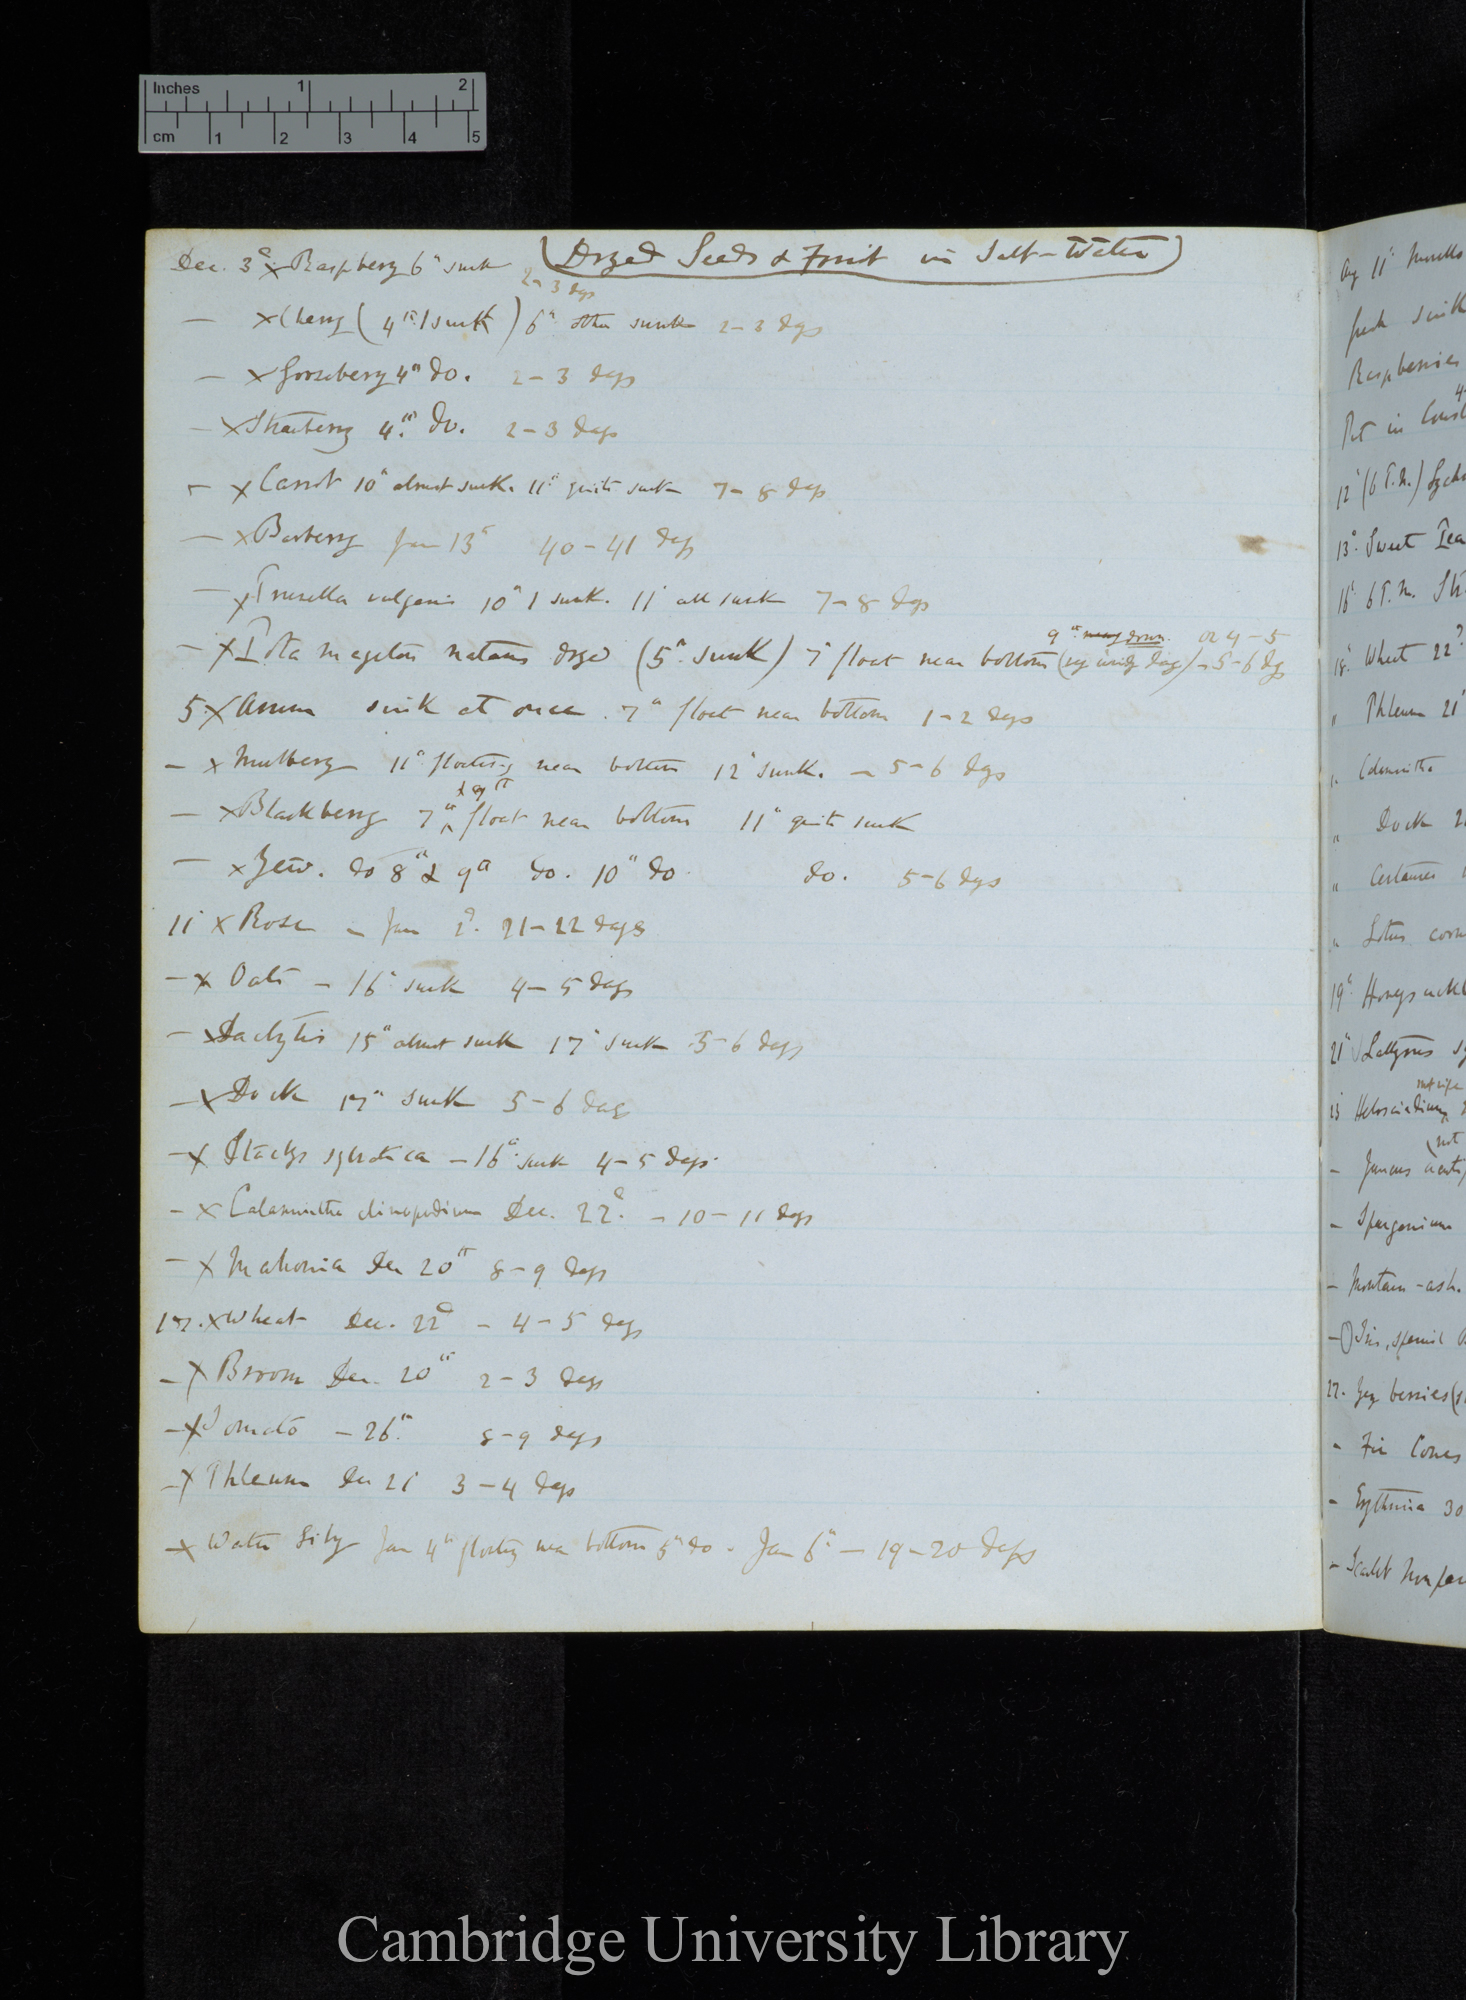 Inches 1 2
cm 1 2 3 4 5
(Dryed Seeds & Fruit in Salt-Water)
Dec. 3d x Raspberry 6th sunk 2-3 days
— x Cherry (4th 1 sunk) 6th other sunk 2-3 days
— x Gooseberry 4th do. 2-3 days
— x Strawberry 4th. do. 2-3 days
— x Carrot 10th almost sunk. 11th quite sunk 7-8 days
— x Barberry Jan 13th 40-41 days
— x Prunella vulgaris 10th 1 sunk. 11th all sunk 7-8 days
— x Potamageton natans dryed (5th. sunk) 7th float near bottom (say days) — 5-6 days
9th or 4-5
5. x Arum sink at once. 7th float near bottom 1-2 days
— x Mulberry 11th floating near bottom 12th sunk. — 5-6 days
— x Blackberry 7th & 9th float near bottom 11th quite sunk
— x Yew. do 8th & 9th do. 10th do. do. 5-6 days
11th x Rose — Jan 2d. 21-22 days
— x Oats — 16th sunk 4-5 days
— x Dactylis 15th almost sunk 17th sunk 5-6 days
— x Dock 17th sunk 5-6 days
— x Stachys sylvatica — 16th sunk 4-5 days.
— x Calamintha clinopodium Dec. 22d. — 10-11 days
— x Mahonia Dec 20th 8-9 days
17. x Wheat Dec. 22d — 4-5 days
— x Broom Dec. 20th 2-3 days
— x Tomato — 26th. 8-9 days
— x Phleum Dec 21 3-4 days
— x Water Lily Jan 4th floating near bottom 5th do. Jan 6th — 19-20 days
Aug 11th
fresh
Raspberries
Put in
12th (6 P.M.)
13th. Sweet Pea
16th 6 P.M.
18th. Wheat 22?
" Phleum 21
" Calamintha
" Dock
"
" Lotus
19th. Honeysuckle
21st Lathyrus
23 Helosciadium
not
— Juncus
— Sparganium
— Mountain-ash.
— Iris,
22. berries
— Fir Cones
— Erythrina 30
— Scarlet
Cambridge University Library